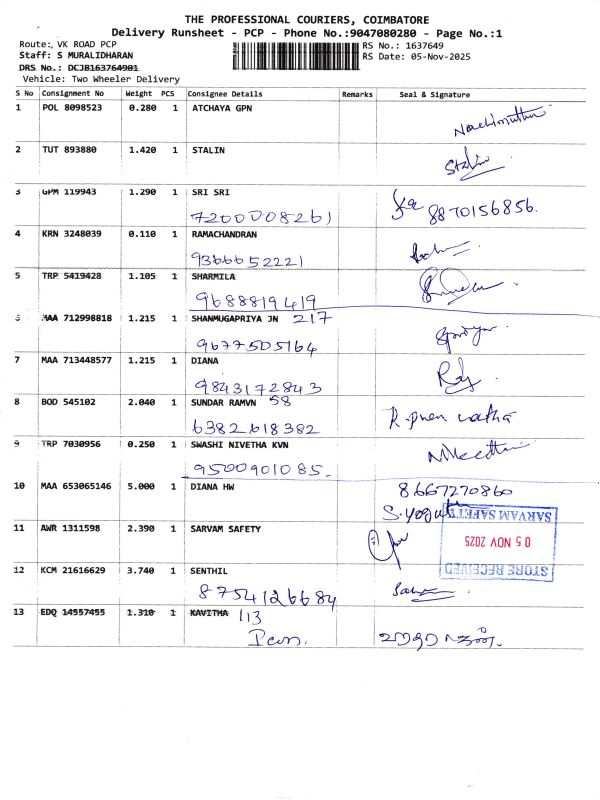 THE PROFESSIONAL COURIERS, COIMBATORE
Delivery Runsheet - PCP - Phone No.:9047080280 - Page No.:1
Route:, VK ROAD PCP RS No.: 1637649
Staff: S MURALIDHARAN RS Date: 05-Nov-2025
DRS No.: DCJB163764901
Vehicle: Two Wheeler Delivery
S No Consignment No Weight PCS Consignee Details Remarks Seal & Signature
1 POL 8098523 0.280 1 ATCHAYA GPN
2 TUT 893880 1.420 1 STALIN Stalin
3 GPM 119943 1.290 1 SRI SRI
7200008261 8870156856.
4 KRN 3248039 0.110 1 RAMACHANDRAN
9366652221
5 TRP 5419428 1.105 1 SHARMILA
9688819419
6 MAA 712998818 1.215 1 SHANMUGAPRIYA JN 217
9677505164
7 MAA 713448577 1.215 1 DIANA
9843172843
8 BOD 545102 2.040 1 SUNDAR RAMVN 58
6382618382
9 TRP 7030956 0.250 1 SWASHI NIVETHA KVN
9500901085.
10 MAA 653065146 5.000 1 DIANA HW 8667270860
S.yoga
SARVAM SAFETY
11 AWR 1311598 2.390 1 SARVAM SAFETY
05 NOV 2025
STORE RECEIVED
12 KCM 21616629 3.740 1 SENTHIL
8754126684
13 EDQ 14557455 1.310 1 KAVITHA 113